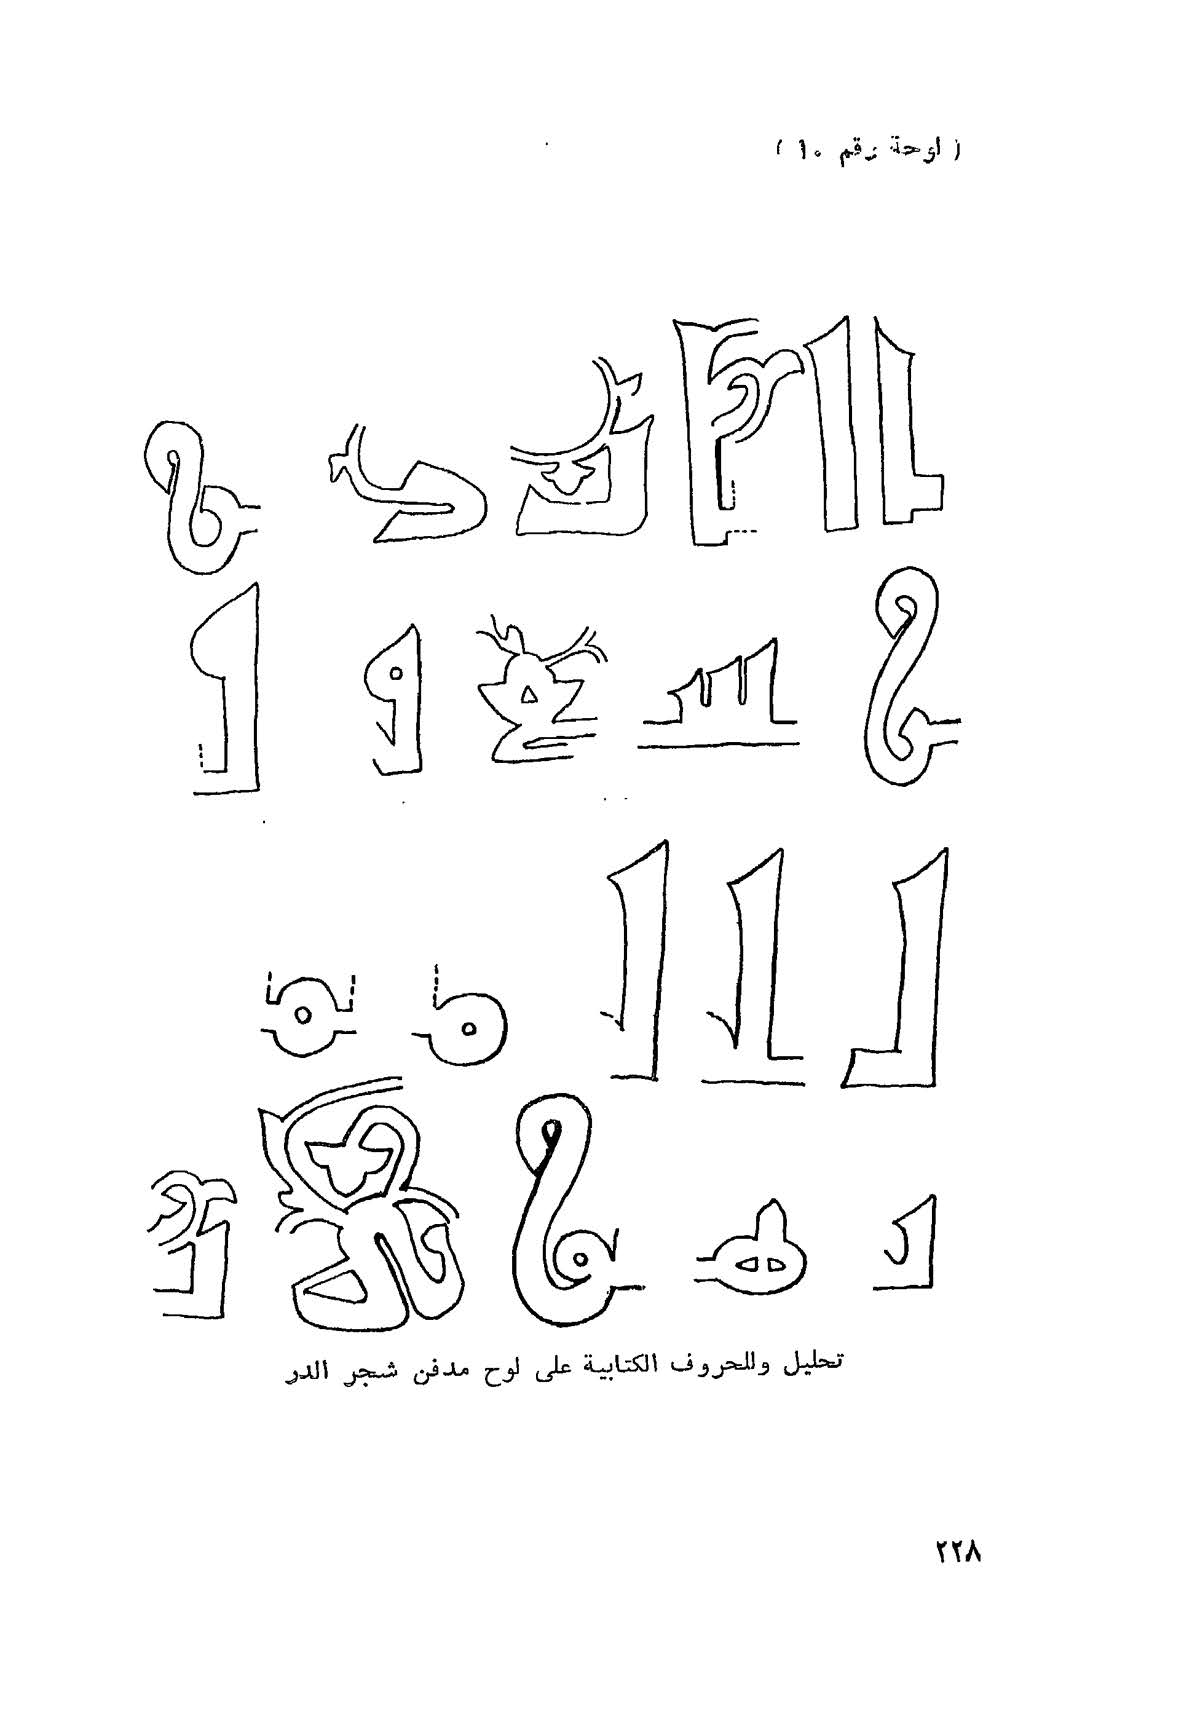 ( لوحة رقم ١٠ )
تحليل وللحروف الكتابية على لوح مدفن شجر الدر
٢٢٨